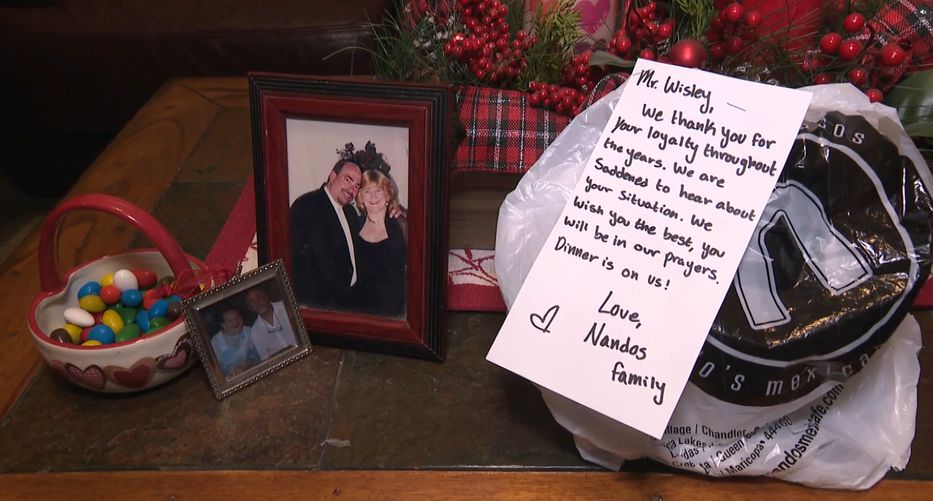 Mr. Wisley,
We thank you for
your loyalty throughout
the years. We are
Saddened to hear about
your situation. We
wish you the best, you
will be in our prayers.
Dinner is on us!
Love,
Nandos
family
DOS
n
o's mexica
llage | Chandler
Lakes
Queen
Maricopa
44460
andosmexcafe.com